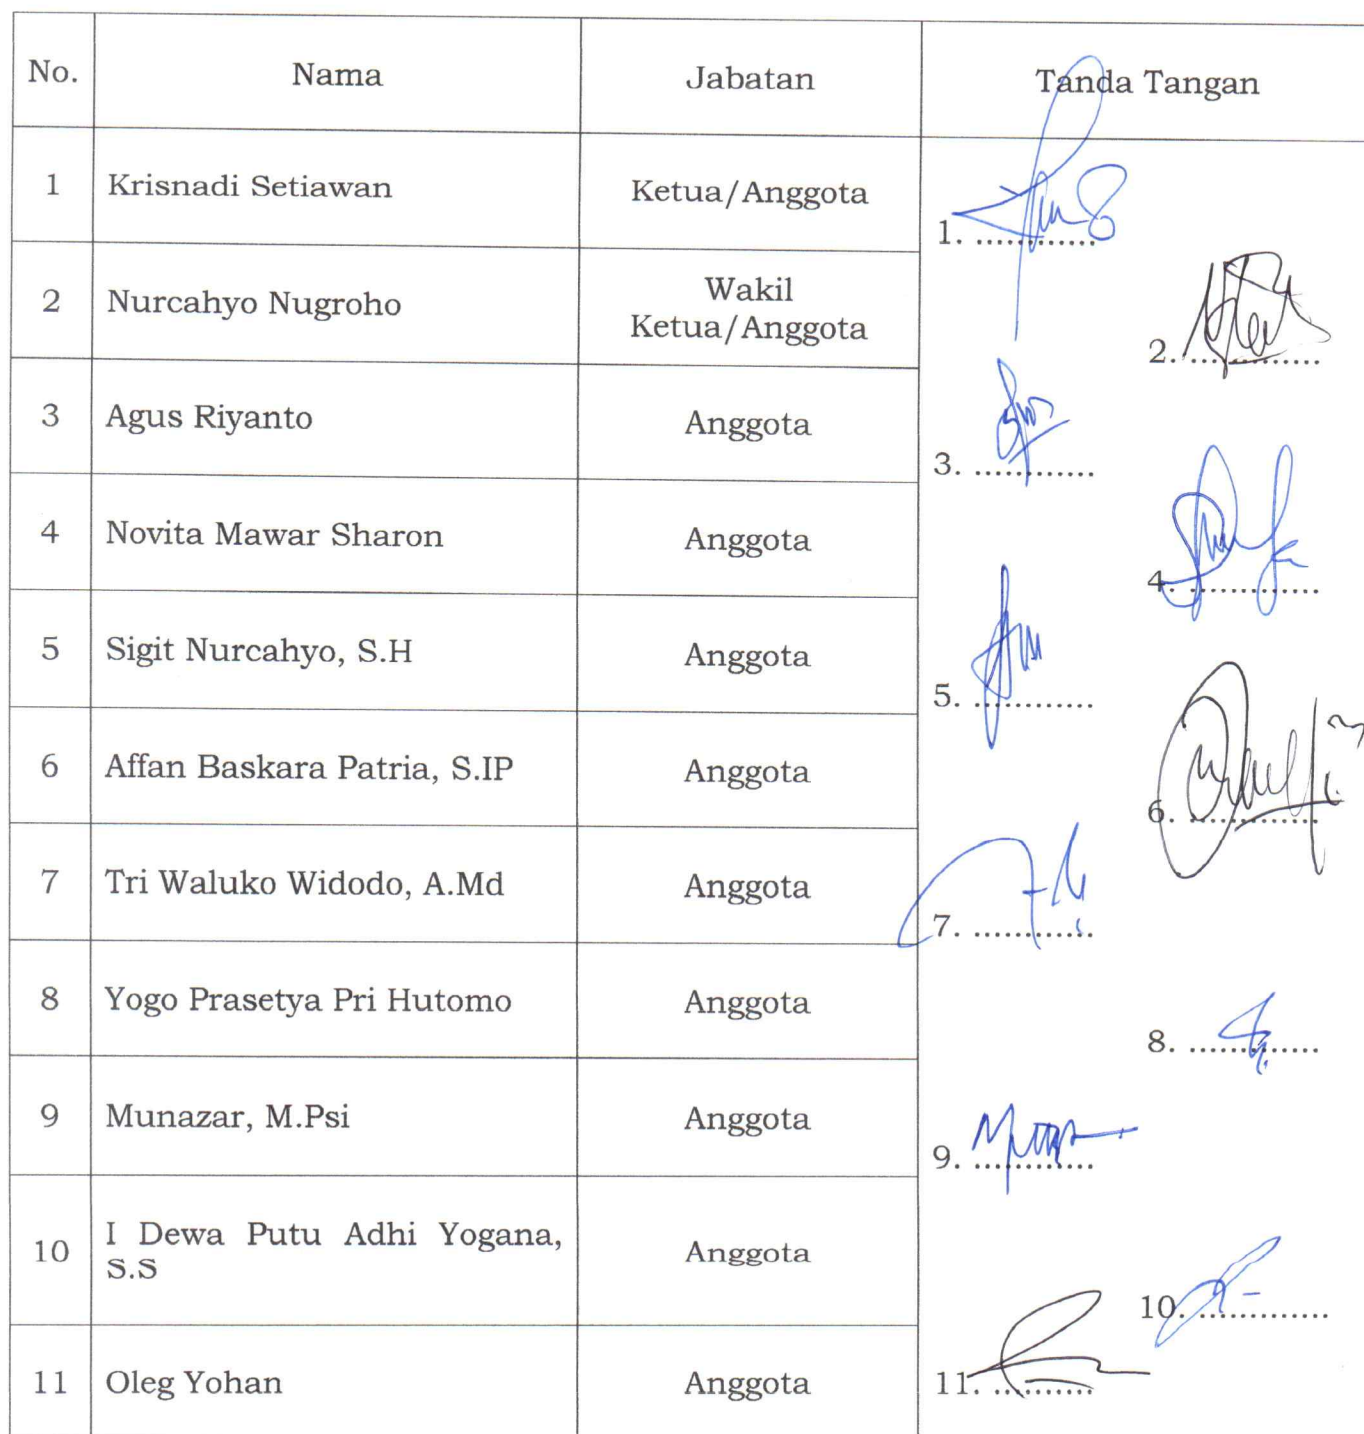 No. Nama Jabatan Tanda Tangan
1 Krisnadi Setiawan Ketua/Anggota 1. ............
2 Nurcahyo Nugroho Wakil
Ketua/Anggota 2. .............
3 Agus Riyanto Anggota 3. ............
4 Novita Mawar Sharon Anggota 4. .............
5 Sigit Nurcahyo, S.H Anggota 5. ............
6 Affan Baskara Patria, S.IP Anggota 6. .............
7 Tri Waluko Widodo, A.Md Anggota 7. ............
8 Yogo Prasetya Pri Hutomo Anggota 8. .............
9 Munazar, M.Psi Anggota 9. ............
10 I Dewa Putu Adhi Yogana,
S.S Anggota 10. .............
11 Oleg Yohan Anggota 11. ..........